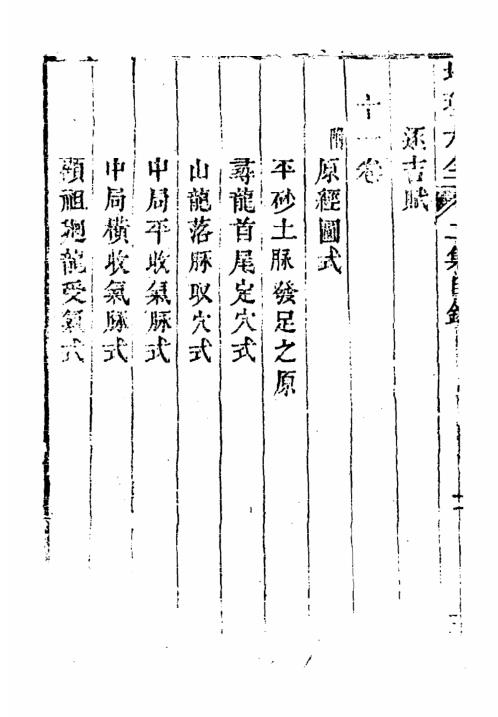 地理大全二集目錄
逐吉賦
十一卷
附原經圖式
平砂土脉發足之原
尋龍首尾定穴式
山龍落脉取穴式
中局平收氣脉式
中局橫收氣脉式
顧祖廻龍受氣式